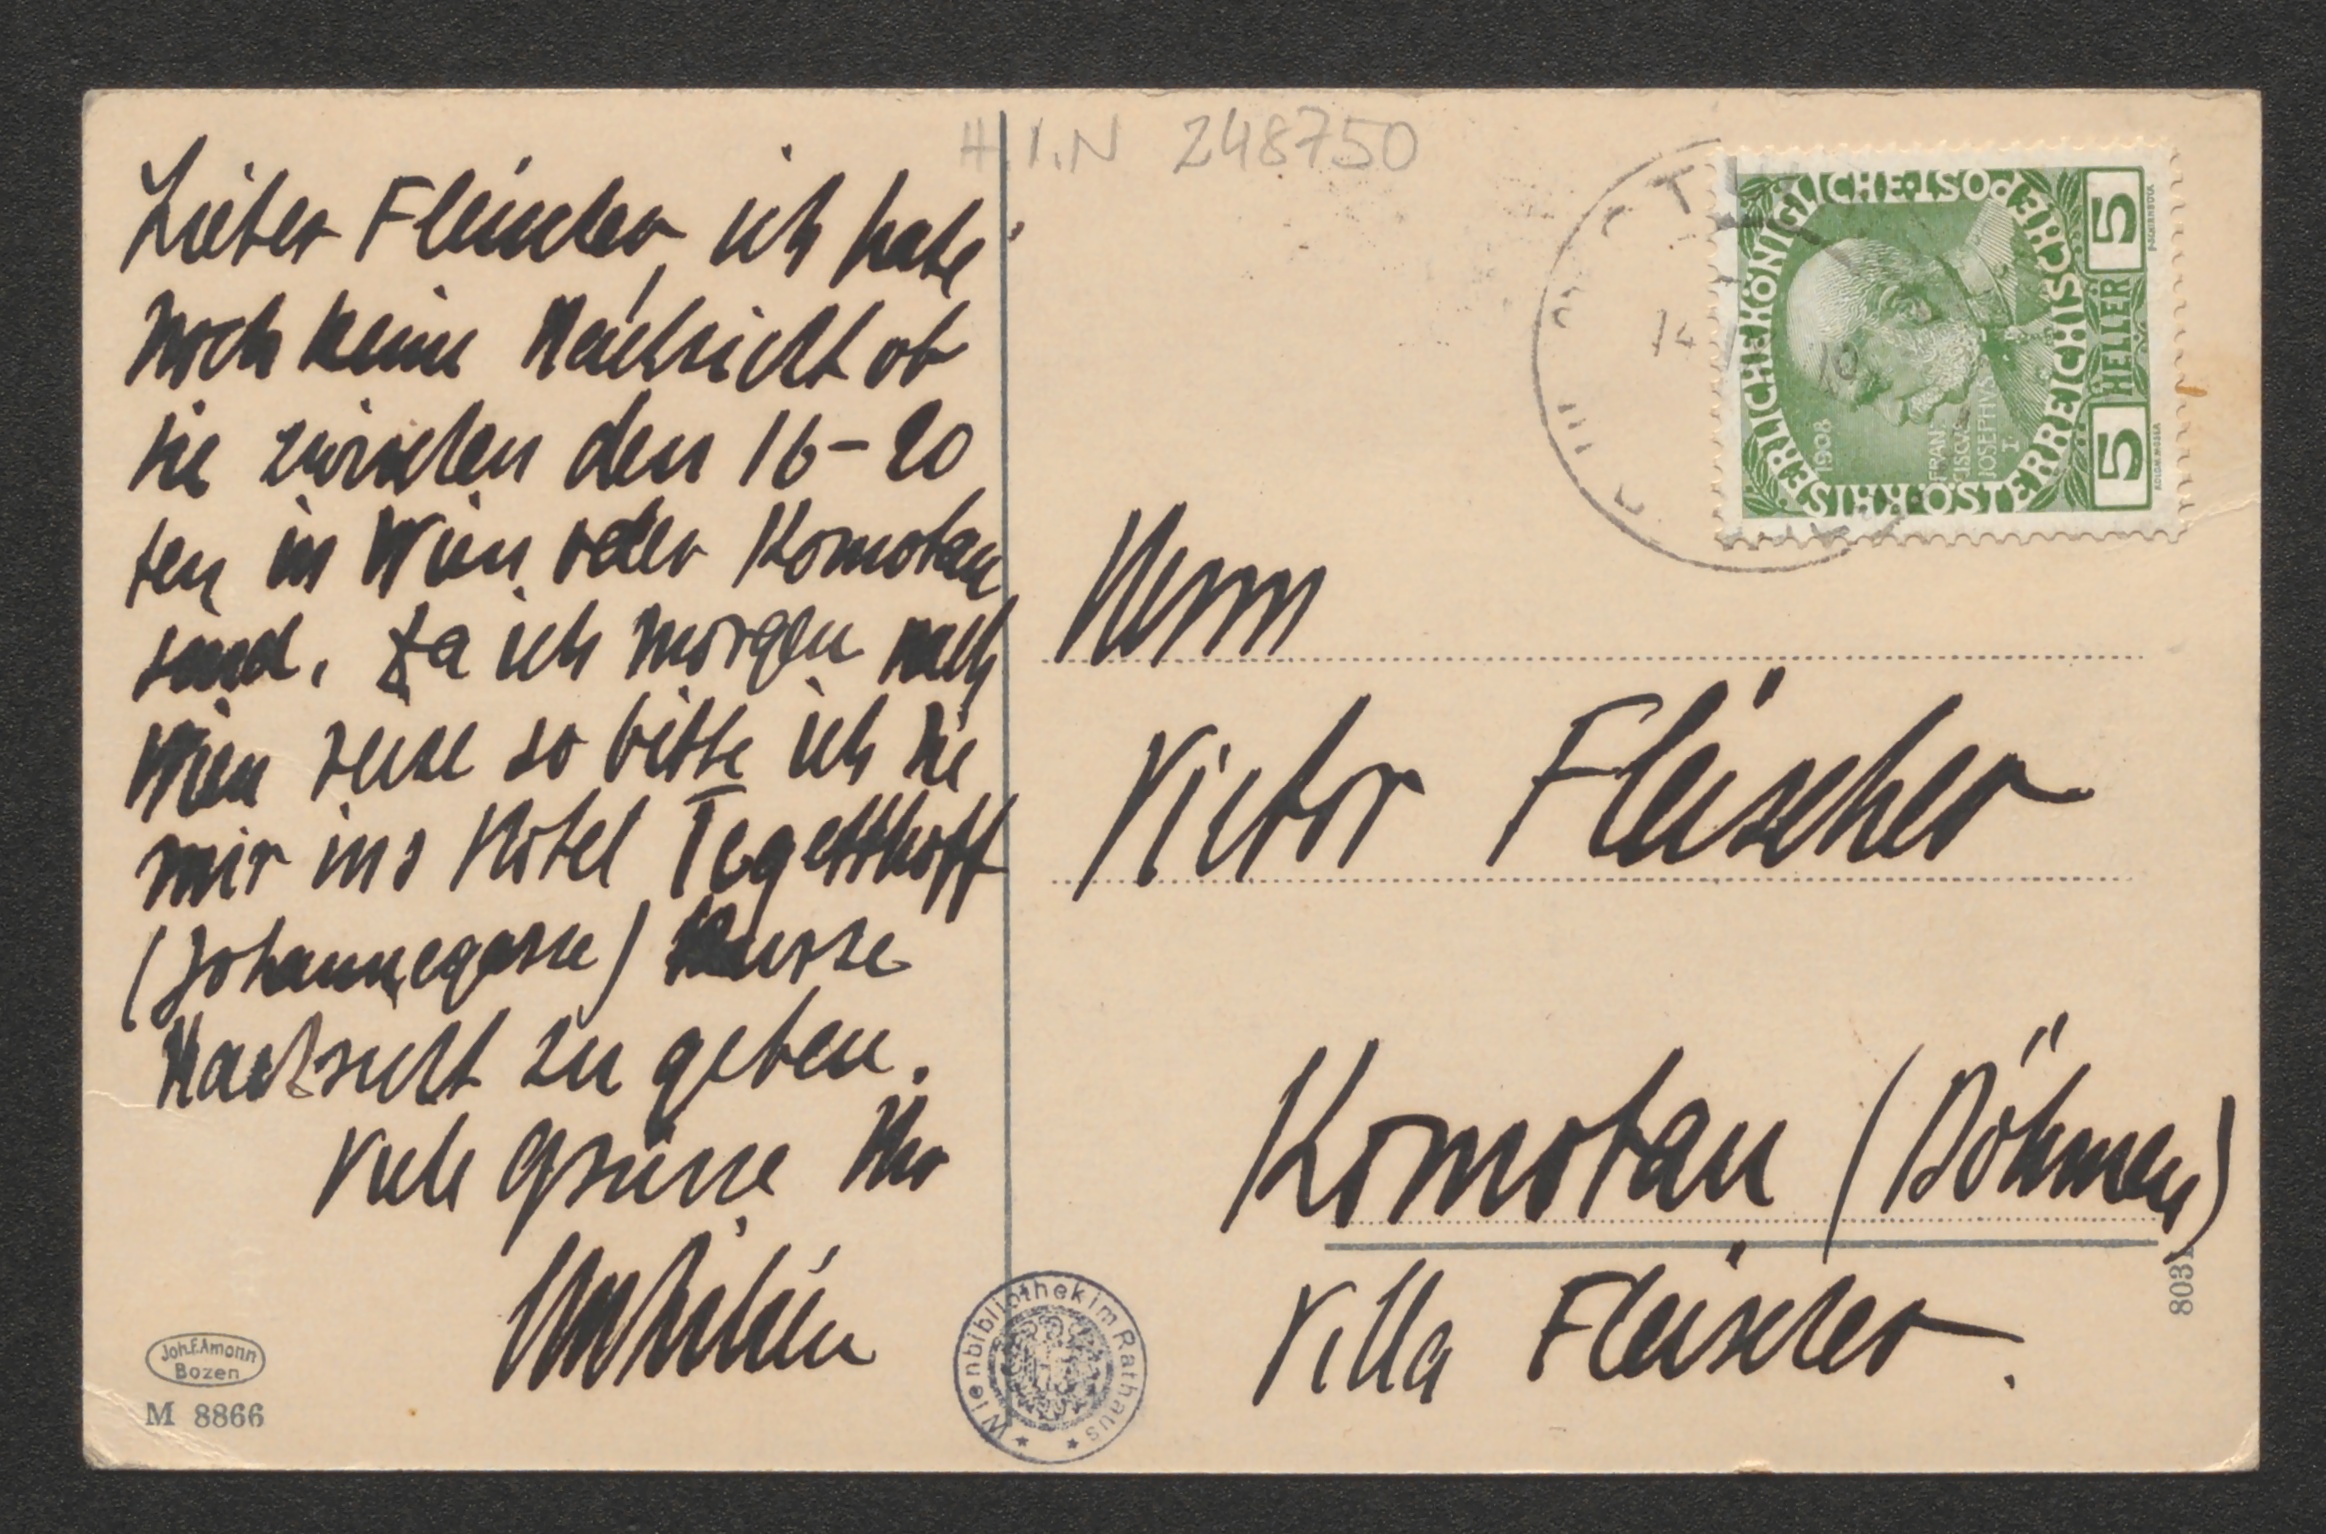 Lieber Fleischer, ich habe
noch keine Nachricht ob
Sie zwischen den 16–20
ten in Wien oder Komotau
sind. Da ich morgen nach
Wien reise so bitte ich Sie
mir ins Hotel Tegetthoff
(Johannegasse) kurze
Nachricht zu geben.
Viele Grüsse Ihr
H.I.N 248750
Herrn
Victor Fleischer
Komotau (Böhmen)
Villa Fleischer.
KAISERLICHEKÖNIGLICHE
ÖSTERREICHISCHEPOST
5 HELLER 5
1908
FRAN
CISCVS
IOSEPHVS
I
Joh.F.Amonn
Bozen
M 8866
Wienbibliothek im Rathaus